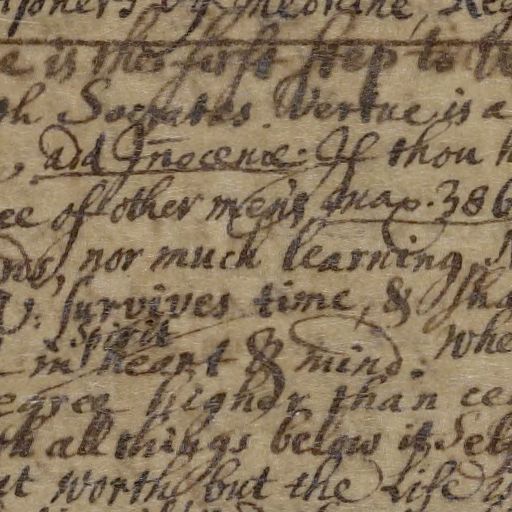 is the first step to
Socrates. Vertue is a
, add Innocence. If thou
of other men's max. 386
nor much learning,
survives time, & sha
Spirit
in heart & mind. Whe
egree higher than ce
th all things below it Sel
at worth but the Life is